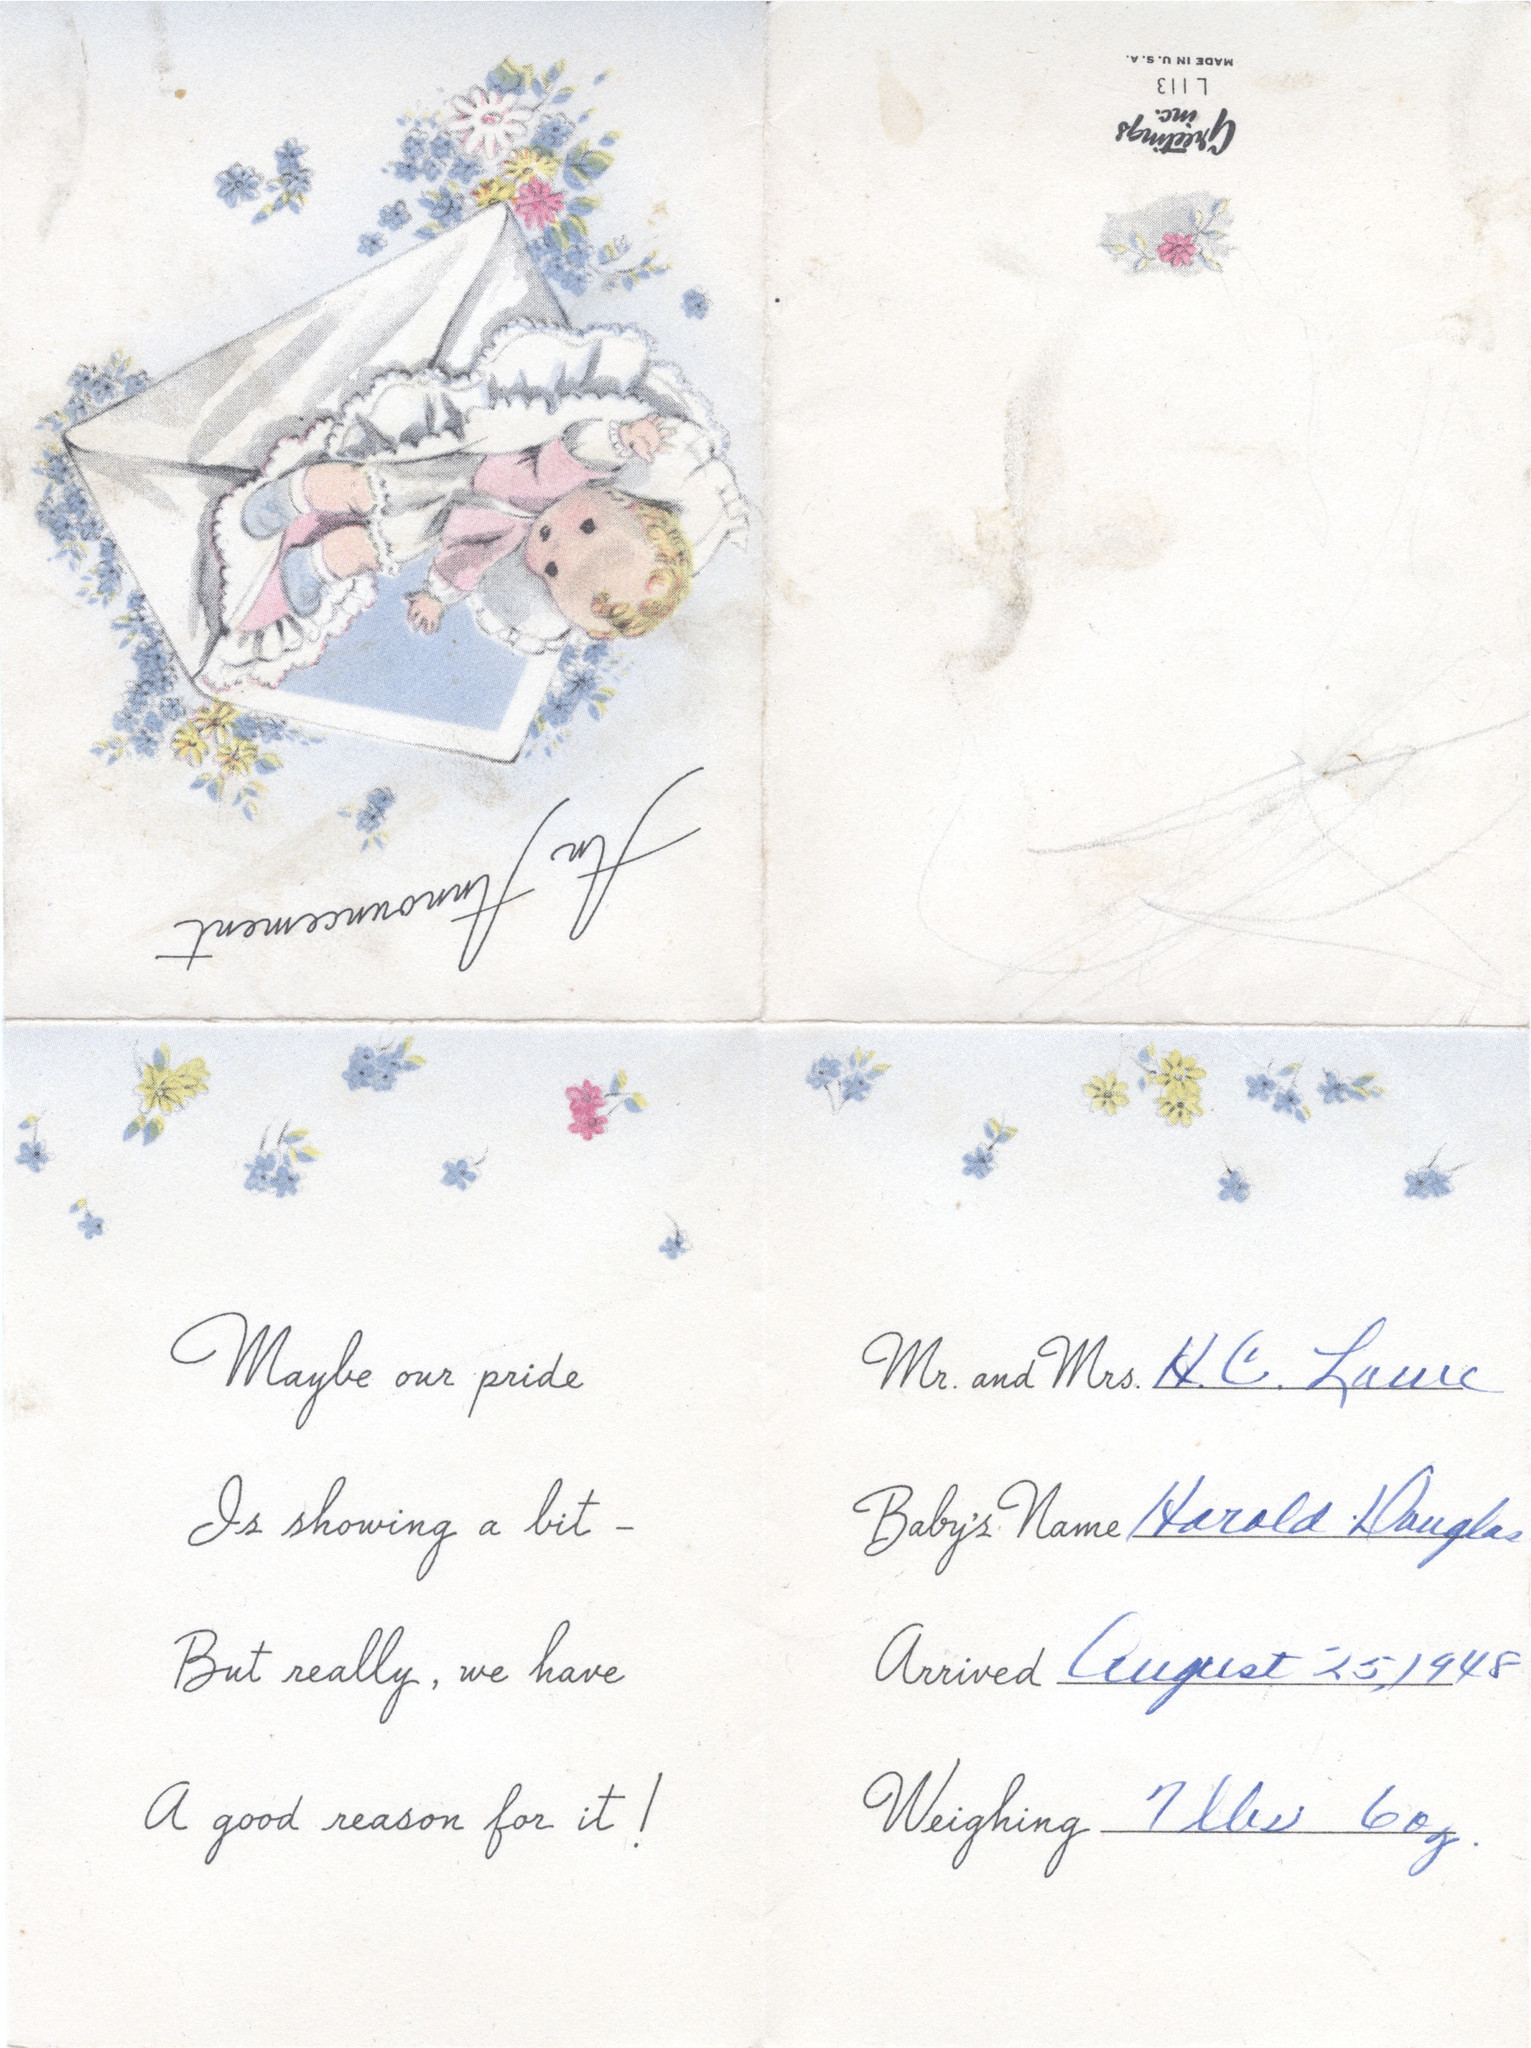 An Announcement
Greetings
inc.
L 113
MADE IN U.S.A.
Maybe our pride
Is showing a bit -
But really, we have
A good reason for it!
Mr. and Mrs. H. C.
Baby's Name Harold Douglas
Arrived August 25, 1948
Weighing 7 lbs 6 oz.